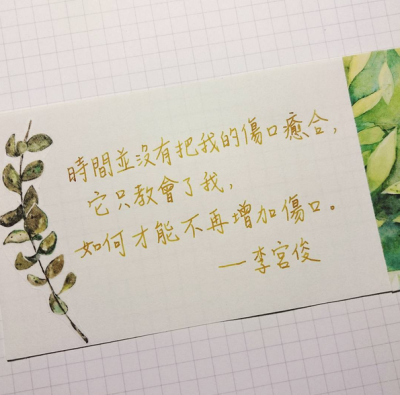 時間並沒有把我的傷口癒合，
它只教會了我，
如何才能不再增加傷口。
—李宮俊